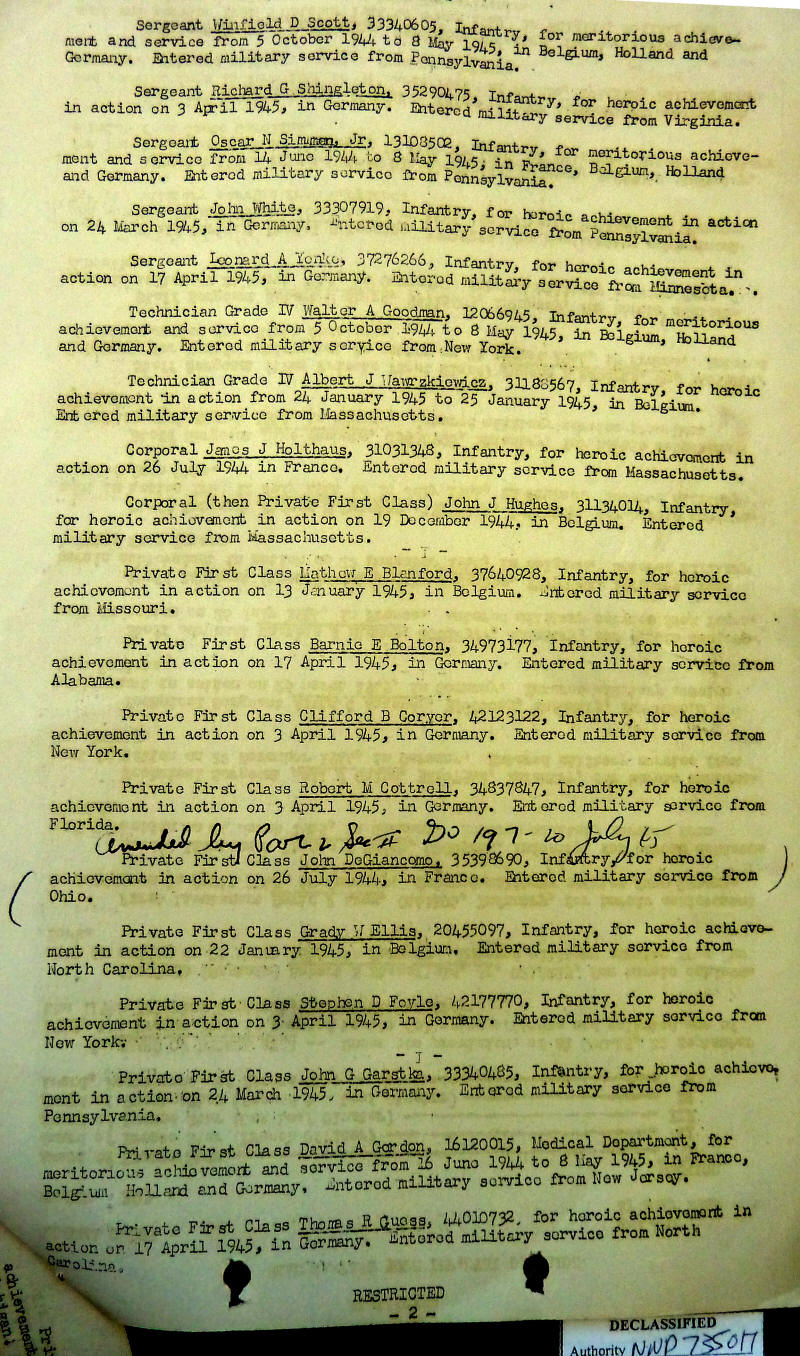 Sergeant Winfield D Scott, 33340605, Infantry, for meritorious achieve-
ment and service from 5 October 1944 to 8 May 1945, in Belgium, Holland and
Germany. Entered military service from Pennsylvania.
Sergeant Richard G Shingleton, 35290475, Infantry, for heroic achievement
in action on 3 April 1945, in Germany. Entered military service from Virginia.
Sergeant Oscar N Simmen, Jr, 13108502, Infantry, for meritorious achieve-
ment and service from 14 June 1944 to 8 May 1945, in France, Belgium, Holland
and Germany. Entered military service from Pennsylvania.
Sergeant John White, 33307919, Infantry, for heroic achievement in action
on 24 March 1945, in Germany. Entered military service from Pennsylvania.
Sergeant Leonard A 37276266, Infantry, for heroic achievement in
action on 17 April 1945, in Germany. Entered military service from Minnesota.
Technician Grade IV Walter A Goodman, 12066945, Infantry, for meritorious
achievement and service from 5 October 1944 to 8 May 1945, in Belgium, Holland
and Germany. Entered military service from New York.
Technician Grade IV Albert J Wawrzkiewicz, 31188567, Infantry, for heroic
achievement in action from 24 January 1945 to 25 January 1945, in Belgium.
Entered military service from Massachusetts.
Corporal James J Holthaus, 31031348, Infantry, for heroic achievement in
action on 26 July 1944 in France. Entered military service from Massachusetts.
Corporal (then Private First Class) John J Hughes, 31134014, Infantry,
for heroic achievement in action on 19 December 1944, in Belgium. Entered
military service from Massachusetts.
- I -
Private First Class Mathew E Blanford, 37640928, Infantry, for heroic
achievement in action on 13 January 1945, in Belgium. Entered military service
from Missouri.
Private First Class Barnie E Bolton, 34973177, Infantry, for heroic
achievement in action on 17 April 1945, in Germany. Entered military service from
Alabama.
Private First Class Clifford B Coryer, 42123122, Infantry, for heroic
achievement in action on 3 April 1945, in Germany. Entered military service from
New York.
Private First Class Robert M Cottrell, 34837847, Infantry, for heroic
achievement in action on 3 April 1945, in Germany. Entered military service from
Florida.
amended by Par 2 Sec II DO 197 - 20 July 45
Private First Class John DeGiancomo, 35398690, Infantry, for heroic
achievement in action on 26 July 1944, in France. Entered military service from
Ohio.
Private First Class Grady W Ellis, 20455097, Infantry, for heroic achieve-
ment in action on 22 January 1945, in Belgium. Entered military service from
North Carolina.
Private First Class Stephen D Foyle, 42177770, Infantry, for heroic
achievement in action on 3 April 1945, in Germany. Entered military service from
New York.
- I -
Private First Class John G Garstka, 33340485, Infantry, for heroic achieve-
ment in action on 24 March 1945, in Germany. Entered military service from
Pennsylvania.
Private First Class David A Gordon, 16120015, Medical Department, for
meritorious achievement and service from 16 June 1944 to 8 May 1945, in France,
Belgium Holland and Germany. Entered military service from New Jersey.
Private First Class Thomas R Guess, 44010732, for heroic achievement in
action on 17 April 1945, in Germany. Entered military service from North
Carolina.
RESTRICTED
- 2 -
DECLASSIFIED
Authority NND 735017